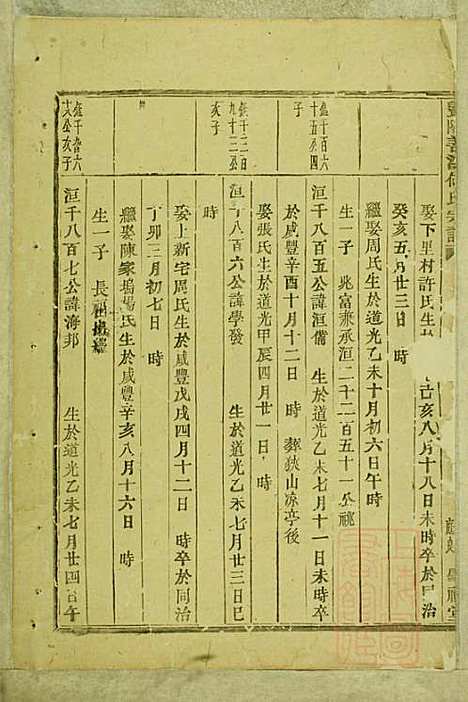 娶下里村許氏生於 亥八月十八日未時卒於同治
癸亥五月廿三日 時
繼娶周氏生於道光乙未十月初六日午時
生一子 兆富兼承洹二千二百五十一公祧
洹千八百五公諱洹儒 生於道光乙未七月十一日未時卒
於咸豐辛酉十月十二日 時 葬狹山凉亭後
娶張氏生於道光甲辰四月廿一日 時
洹千八百六公諱學發 生於道光乙未七月廿三日巳
時
娶上新宅周氏生於咸豐戊戌四月十二日 時卒於同治
丁卯三月初七日 時
繼娶陳家塢楊氏生於咸豐辛亥八月十六日 時
生一子 長
洹千八百七公諱海邦 生於道光乙未七月廿四日午
千百六
十五公四
子
千三百
九十三公
亥子
千六
六公亥子